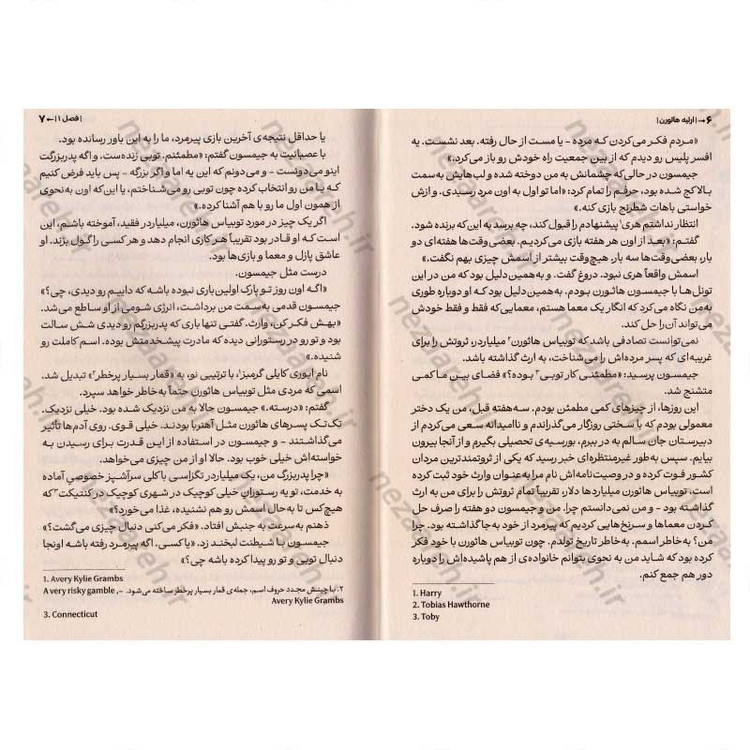 ۶ →| ارثیه هاثورن |
«مردم فکر می‌کردن که مرده – یا مست از حال رفته. بعد نشست. یه
افسر پلیس رو دیدم که از بین جمعیت راه خودش رو باز می‌کرد.»
جیمسون در حالی‌که چشمانش به من دوخته شده و لب‌هایش به‌سمت
بالا کج شده بود، حرفم را تمام کرد: «اما تو اول به اون مرد رسیدی. و ازش
خواستی باهات شطرنج بازی کنه.»
انتظار نداشتم هری¹ پیشنهادم را قبول کند، چه برسد به این‌که برنده شود.
گفتم: «بعد از اون هر هفته بازی می‌کردیم. بعضی وقت‌ها هفته‌ای دو
بار، بعضی وقت‌ها سه بار. هیچ‌وقت بیشتر از اسمش چیزی بهم نگفت.»
اسمش واقعاً هری نبود. دروغ گفت. و به‌همین دلیل بود که من در این
تونل‌ها با جیمسون هاثورن بودم. به‌همین دلیل بود که او دوباره طوری
به من نگاه می‌کرد که انگار یک معما هستم، معمایی که فقط و فقط خودش
می‌تواند آن را حل کند.
نمی‌توانست تصادفی باشد که توبیاس هاثورن² میلیاردر، ثروتش را برای
غریبه‌ای که پسر مرده‌اش را می‌شناخت، به ارث گذاشته باشد.
جیمسون پرسید: «مطمئنی کار توبی³ بوده؟» فضای بین ما کمی
متشنج شد.
این روزها، از چیزهای کمی مطمئن بودم. سه هفته قبل، من یک دختر
معمولی بودم که با سختی روزگار می‌گذراندم و ناامیدانه سعی می‌کردم از
دبیرستان جان سالم به در ببرم، بورسیه‌ی تحصیلی بگیرم و از آنجا بیرون
بیایم. سپس به‌طور غیرمنتظره‌ای خبر رسید که یکی از ثروتمندترین مردان
کشور فوت کرده و در وصیت‌نامه‌اش نام مرا به‌عنوان وارث خود ثبت کرده
است. توبیاس هاثورن میلیاردها دلار، تقریباً تمام ثروتش را برای من به ارث
گذاشته بود – و من نمی‌دانستم چرا. من و جیمسون دو هفته را صرف حل
کردن معماها و سرنخ‌هایی کردیم که پیرمرد از خود به‌جا گذاشته بود. چرا
من؟ به‌خاطر اسمم. به‌خاطر تاریخ تولدم. چون توبیاس هاثورن با خود فکر
کرده بود که شاید من به نحوی بتوانم خانواده‌ی از هم پاشیده‌اش را دوباره
دور هم جمع کنم.
1. Harry
2. Tobias Hawthorne
3. Toby
| فصل ۱ |← ۷
یا حداقل نتیجه‌ی آخرین بازی پیرمرد، ما را به این باور رسانده بود.
با عصبانیت به جیمسون گفتم: «مطمئنم. توبی زنده‌ست. و اگه پدربزرگت
اینو می‌دونست – و می‌دونم که این یه اما و اگر بزرگه – پس باید فرض کنیم
که یا من رو انتخاب کرده چون توبی رو می‌شناختم، یا این‌که اون به‌نحوی
از همون اول ما رو با هم آشنا کرده.»
اگر یک چیز در مورد توبیاس هاثورن، میلیاردر فقید، آموخته باشم، این
است که او قادر بود تقریباً هر کاری انجام دهد و هر کسی را گول بزند. او
عاشق پازل و معما و بازی‌ها بود.
درست مثل جیمسون.
«اگه اون روز تو پارک اولین‌باری نبوده باشه که داییم رو دیدی، چی؟»
جیمسون قدمی به‌سمت من برداشت، انرژی شومی از او ساطع می‌شد.
«بهش فکر کن، وارث. گفتی تنها باری که پدربزرگم رو دیدی شش سالت
بود و تو رو در رستورانی دیده که مادرت پیشخدمتش بوده. اسم کاملت رو
شنیده.»
نام ایوری کایلی گرمبز¹، با ترتیبی نو، به «قمار بسیار پرخطر²» تبدیل شد.
اسمی که مردی مثل توبیاس هاثورن حتماً به‌خاطر خواهد سپرد.
گفتم: «درسته.» جیمسون حالا به من نزدیک شده بود. خیلی نزدیک.
تک‌تک پسرهای هاثورن مثل آهنربا بودند. خیلی قوی. روی آدم‌ها تأثیر
می‌گذاشتند – و جیمسون در استفاده از این قدرت برای رسیدن به
خواسته‌اش خیلی خوب بود. حالا او از من چیزی می‌خواهد.
«چرا پدربزرگ من، یک میلیاردر تگزاسی با کلی سرآشپز خصوصیِ آماده
به خدمت، تو یه رستوران خیلی کوچیک در شهری کوچیک در کنتیکت³ که
هیچ‌کس تا به‌حال اسمش رو هم نشنیده، غذا می‌خورد؟»
ذهنم به‌سرعت به جنبش افتاد. «فکر می‌کنی دنبال چیزی می‌گشت؟»
جیمسون با شیطنت لبخند زد. «یا کسی. اگه پیرمرد رفته باشه اونجا
دنبال توبی و تو رو پیدا کرده باشه چی؟»
1. Avery Kylie Grambs
۲. با چینش مجدد حروف اسم، جمله‌ی قمار بسیار پرخطر ساخته می‌شود. –, A very risky gamble
Avery Kylie Grambs
3. Connecticut
nezaareh.ir